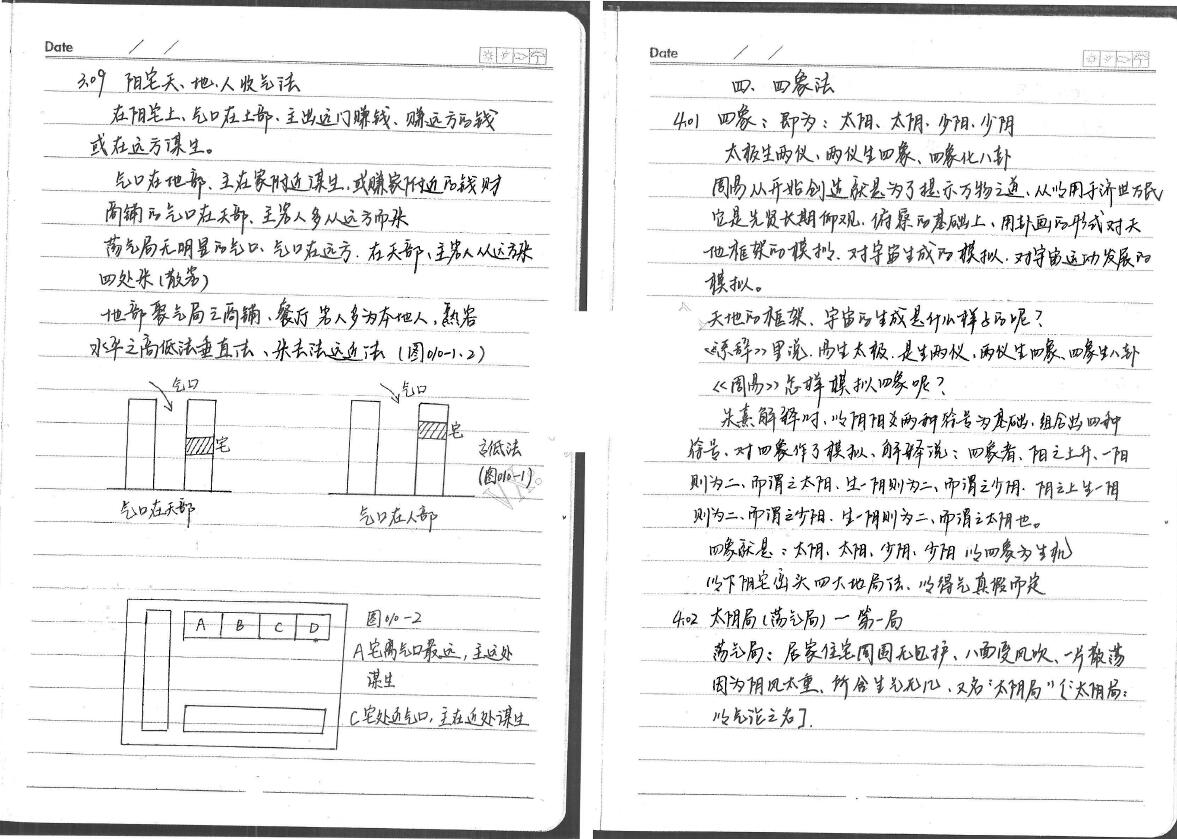 Date / /
3.09 阳宅天、地、人收气法
在阳宅上、气口在上部、主出远门赚钱、赚远方的钱
或在远方谋生。
气口在地部、主在家附近谋生、或赚家附近的钱财
商铺的气口在天部、主客人多从远方而来
荡气局无明显的气口、气口在远方、在天部、主客人从远方来
四处来(散客)
地部聚气局之商铺、餐厅客人多为本地人、熟客
水平之高低法垂直法、来去法远近法 (图010-1、2)
气口
宅
气口在天部
气口
宅
气口在人部
高低法
(图010-1)
A B C D
图010-2
A宅离气口最远,主远处
谋生
C宅处近气口,主在近处谋生
Date / /
四、四象法
4.01 四象:即为:太阴、太阳、少阳、少阴
太极生两仪、两仪生四象、四象化八卦
周易从开始创造就是为了揭示万物之道、从以用于济世万民
它是先贤长期仰观、俯察的基础上、用卦画的形式对天
地框架的模拟、对宇宙生成的模拟、对宇宙运动发展的
模拟。
天地的框架、宇宙的生成是什么样子的呢?
《系辞》里说、易生太极、是生两仪、两仪生四象、四象生八卦
《周易》怎样模拟四象呢?
朱熹解释时、以阴阳爻两种符号为基础、组合出四种
符号、对四象作了模拟、解释说:四象者、阳之上升、一阳
则为二、而谓之太阳、生一阴则为二、而谓之少阴、阴之上生一阳
则为二、而谓之少阳、生一阴则为二、而谓之太阴也。
四象就是:太阴、太阳、少阴、少阳 以四象为生机
以下阳宅峦头四大地局法、以得气真假而定
4.02 太阴局(荡气局)一第一局
荡气局:居家住宅周围无包护、八面受风吹、一片散荡
因为阴风太重、所含生气无几、又名“太阴局”[太阴局:
以气论之名].